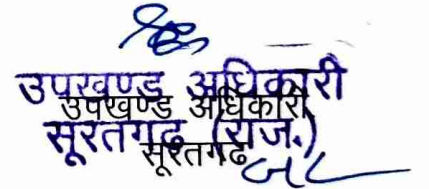 उपखण्ड अधिकारी
उपखण्ड अधिकारी
सूरतगढ़ (राज.)
सूरतगढ़